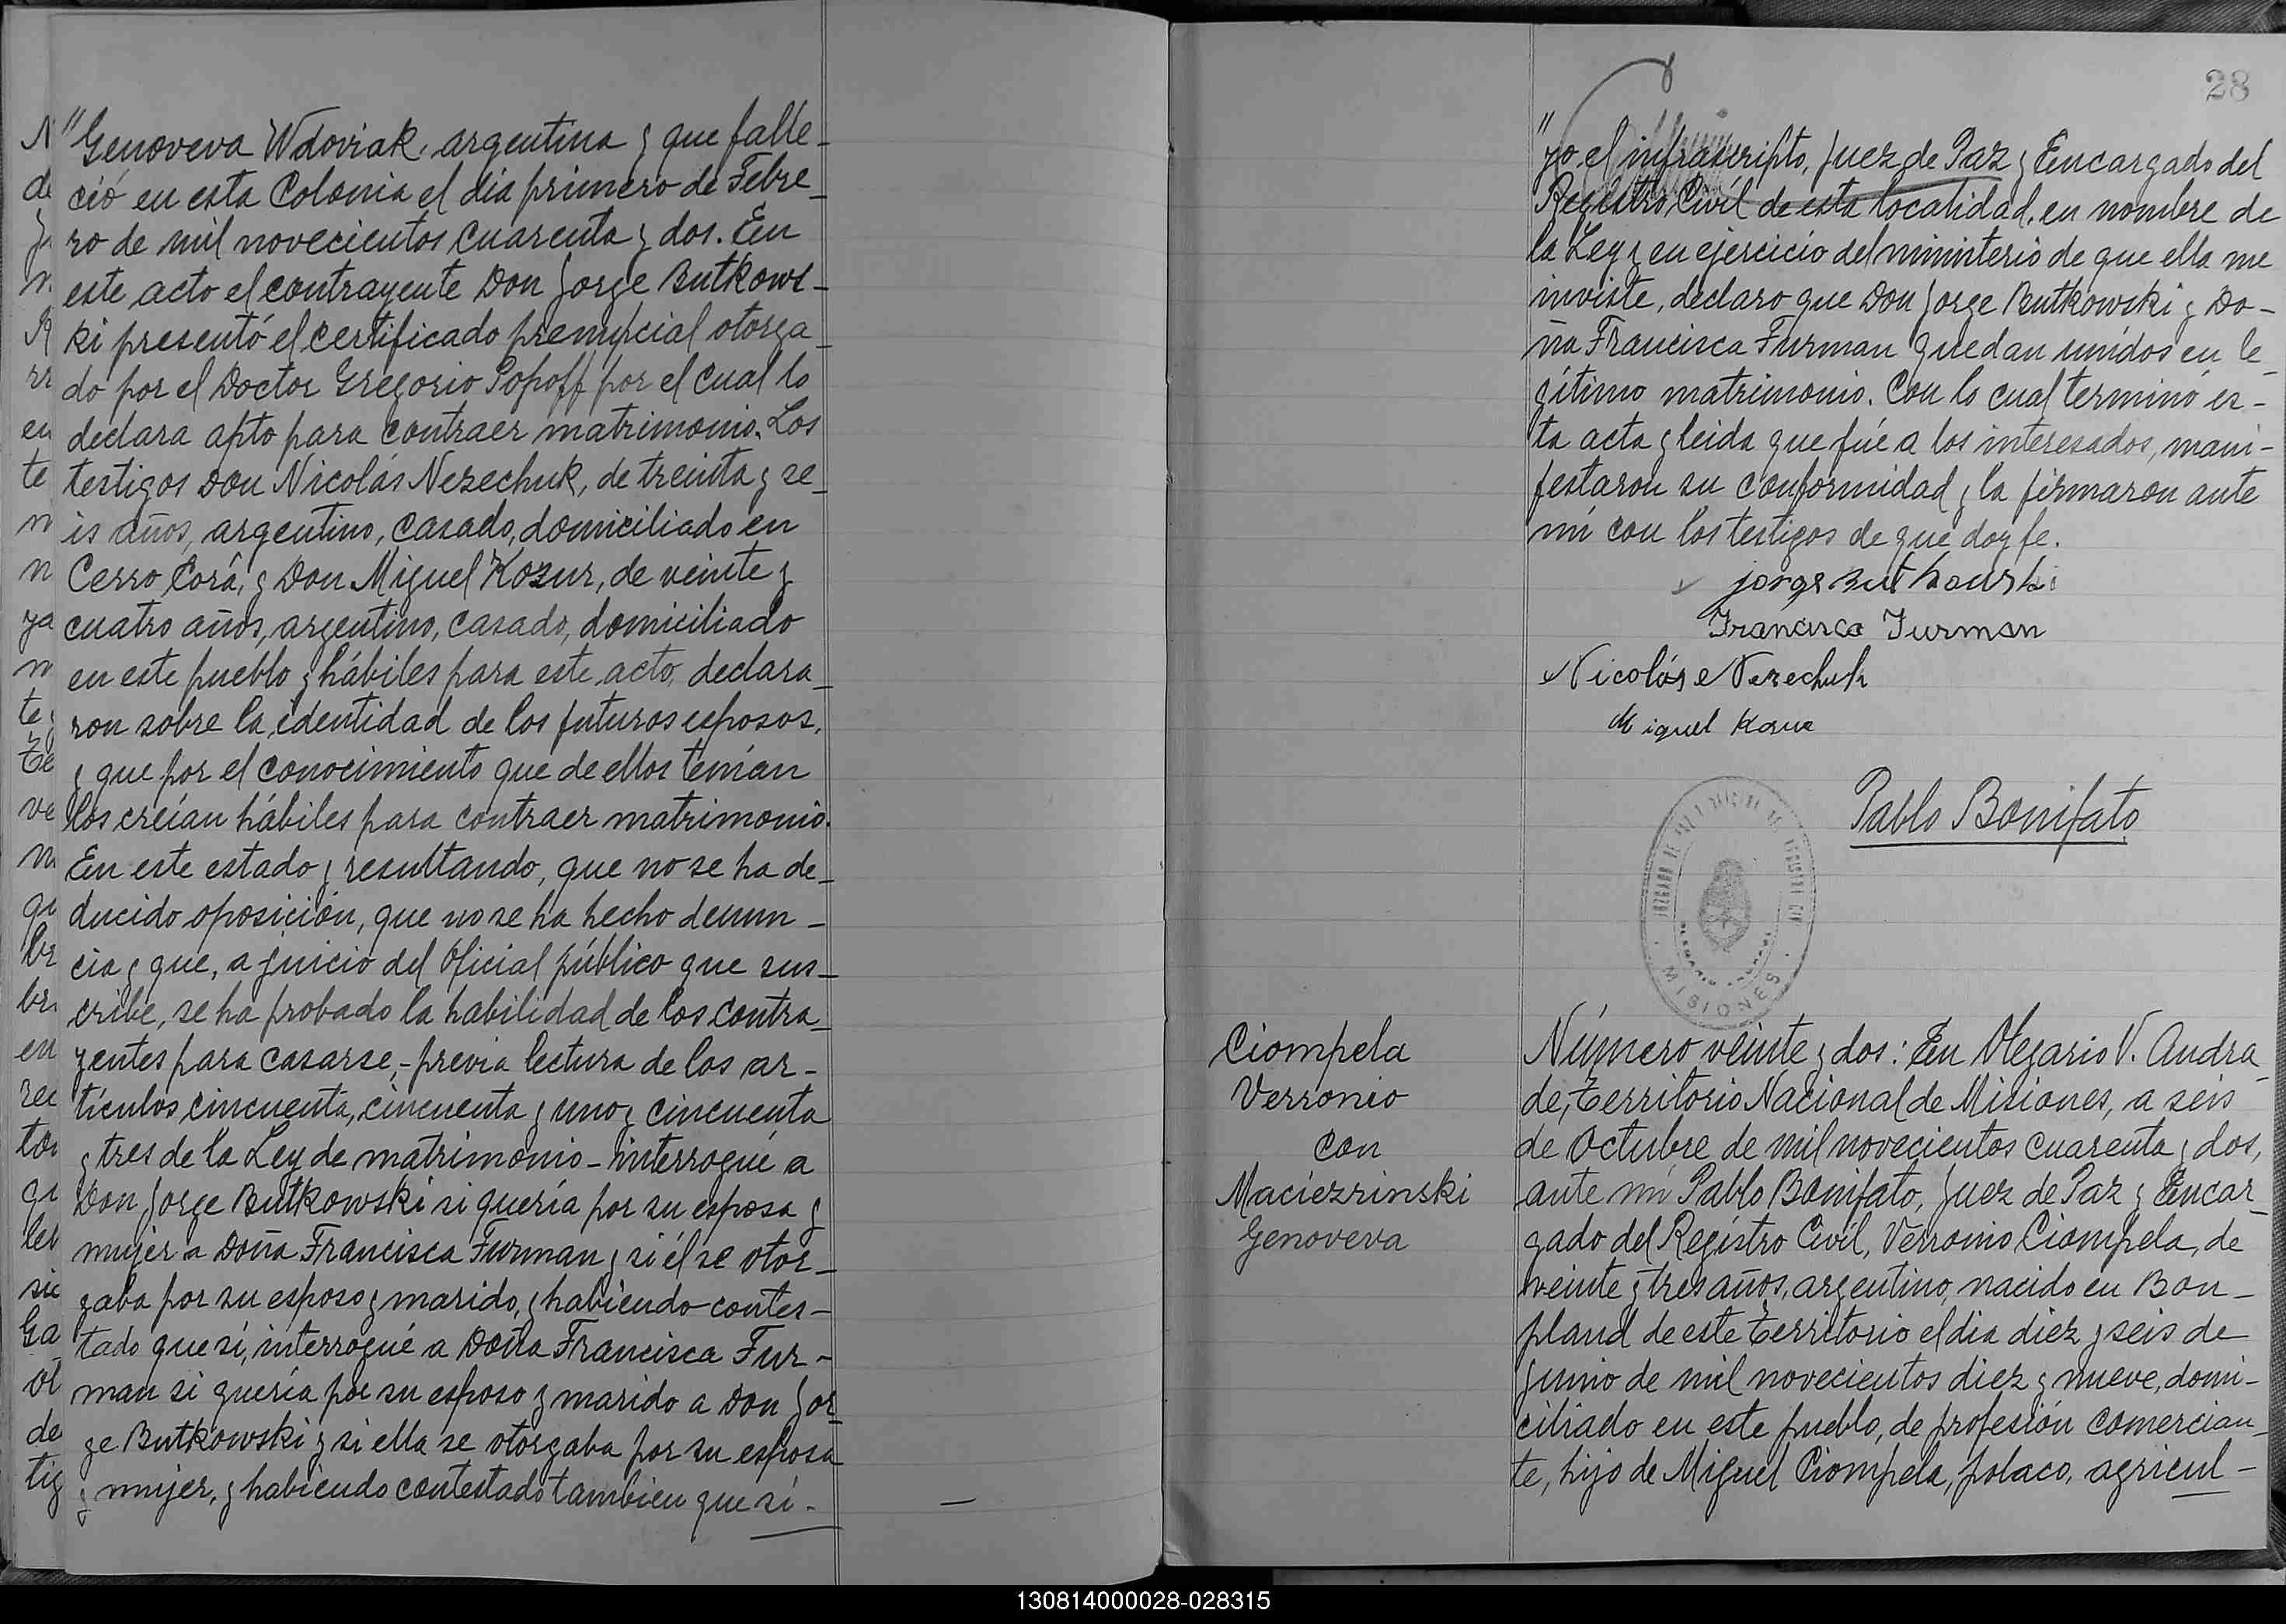 "Genoveva Wdoviak, argentina y que falle-
ció en esta Colonia el dia primero de Febre-
ro de mil novecientos cuarenta y dos. En
este acto el contrayente Don Jorge Butkows-
ki presentó el certificado prenupcial otorga-
do por el Doctor Gregorio Popoff por el cual lo
declara apto para contraer matrimonio. Los
testigos Don Nicolás Nezechuk, de treinta y se-
is años, argentino, casado, domiciliado en
Cerro Corá, y Don Miguel Kozur, de veinte y
cuatro años, argentino, casado, domiciliado
en este pueblo y hábiles para este acto, declara-
ron sobre la identidad de los futuros esposos,
y que por el conocimiento que de ellos tenían
los creían hábiles para contraer matrimonio.
En este estado y resultando, que no se ha de-
ducido oposición, que no se ha hecho denun-
cia y que, a juicio del Oficial público que sus-
cribe, se ha probado la habilidad de los contra-
yentes para casarse,- previa lectura de los ar-
tículos cincuenta, cincuenta y uno y cincuenta
y tres de la Ley de matrimonio - interrogué a
Don Jorge Butkowski si quería por su esposa y
mujer a Doña Francisca Furman y si él se otor-
gaba por su esposo y marido, y habiendo contes-
tado que sí, interrogué a Doña Francisca Fur-
man si quería por su esposo y marido a Don Jor-
ge Butkowski y si ella se otorgaba por su esposa
y mujer, y habiendo contestado tambien que sí -
28
"yo el infrascripto, Juez de Paz y Encargado del
Registro Civil de esta localidad, en nombre de
la Ley y en ejercicio del ministerio de que ella me
inviste, declaro que Don Jorge Butkowski y Do-
ña Francisca Furman quedan unidos en le-
gítimo matrimonio. Con lo cual terminó es-
ta acta y leida que fué a los interesados, mani-
festaron su conformidad y la firmaron ante
mí con los testigos de que doy fe.
Jorge Butkowski
Francisca Furman
Nicolás Nezechuk
Miguel Kozur
Pablo Bonifato
MISIONES
Ciompela
Verronio
con
Maciezrinski
Genoveva
Número veinte y dos: En Olegario V. Andra-
de, Territorio Nacional de Misiones, a seis
de Octubre de mil novecientos cuarenta y dos,
ante mí Pablo Bonifato, Juez de Paz y Encar-
gado del Registro Civil, Verronio Ciompela, de
veinte y tres años, argentino, nacido en Bon-
pland de este Territorio el dia diez y seis de
Junio de mil novecientos diez y nueve, domi-
ciliado en este pueblo, de profesión comercian-
te, hijo de Miguel Ciompela, polaco, agricul-
130814000028-028315